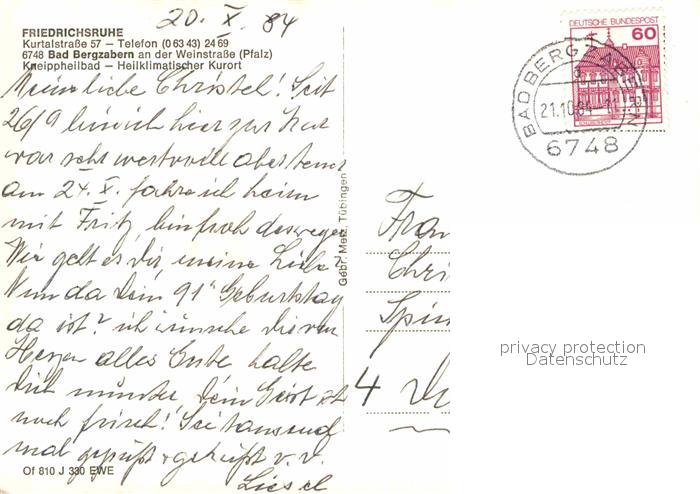 20. X. 84
FRIEDRICHSRUHE
Kurtalstraße 57 — Telefon (0 63 43) 24 69
6748 Bad Bergzabern an der Weinstraße (Pfalz)
Kneippheilbad — Heilklimatischer Kurort
Meine liebe Christel! Seit
26/9 bin ich hier zur Kur
war sehr wertvoll aber teuer
am 24. X. fahre ich heim
mit Fritz, bin froh deswegen
Wie geht es dir meine Liebe?
Nun da Dein 91" Geburtstag
da ist? ich wünsche dir von
Herzen alles Gute halte
dich munter, dein Geist ist
noch frisch! Sei tausend
mal gegrüßt + geküßt v. d.
Liesel
Of 810 J 330 EWE
Gebr. Metz, Tübingen
DEUTSCHE BUNDESPOST
60
BAD BERGZABERN
21.10.84
6748
Fran
Chri
Spin
4
privacy protection
Datenschutz